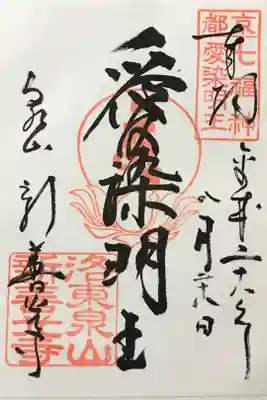 京七福神
都愛染明王
奉拝
平成二十六年
八月
日
愛染明王
泉山
新善光寺
洛東泉山
新善光寺